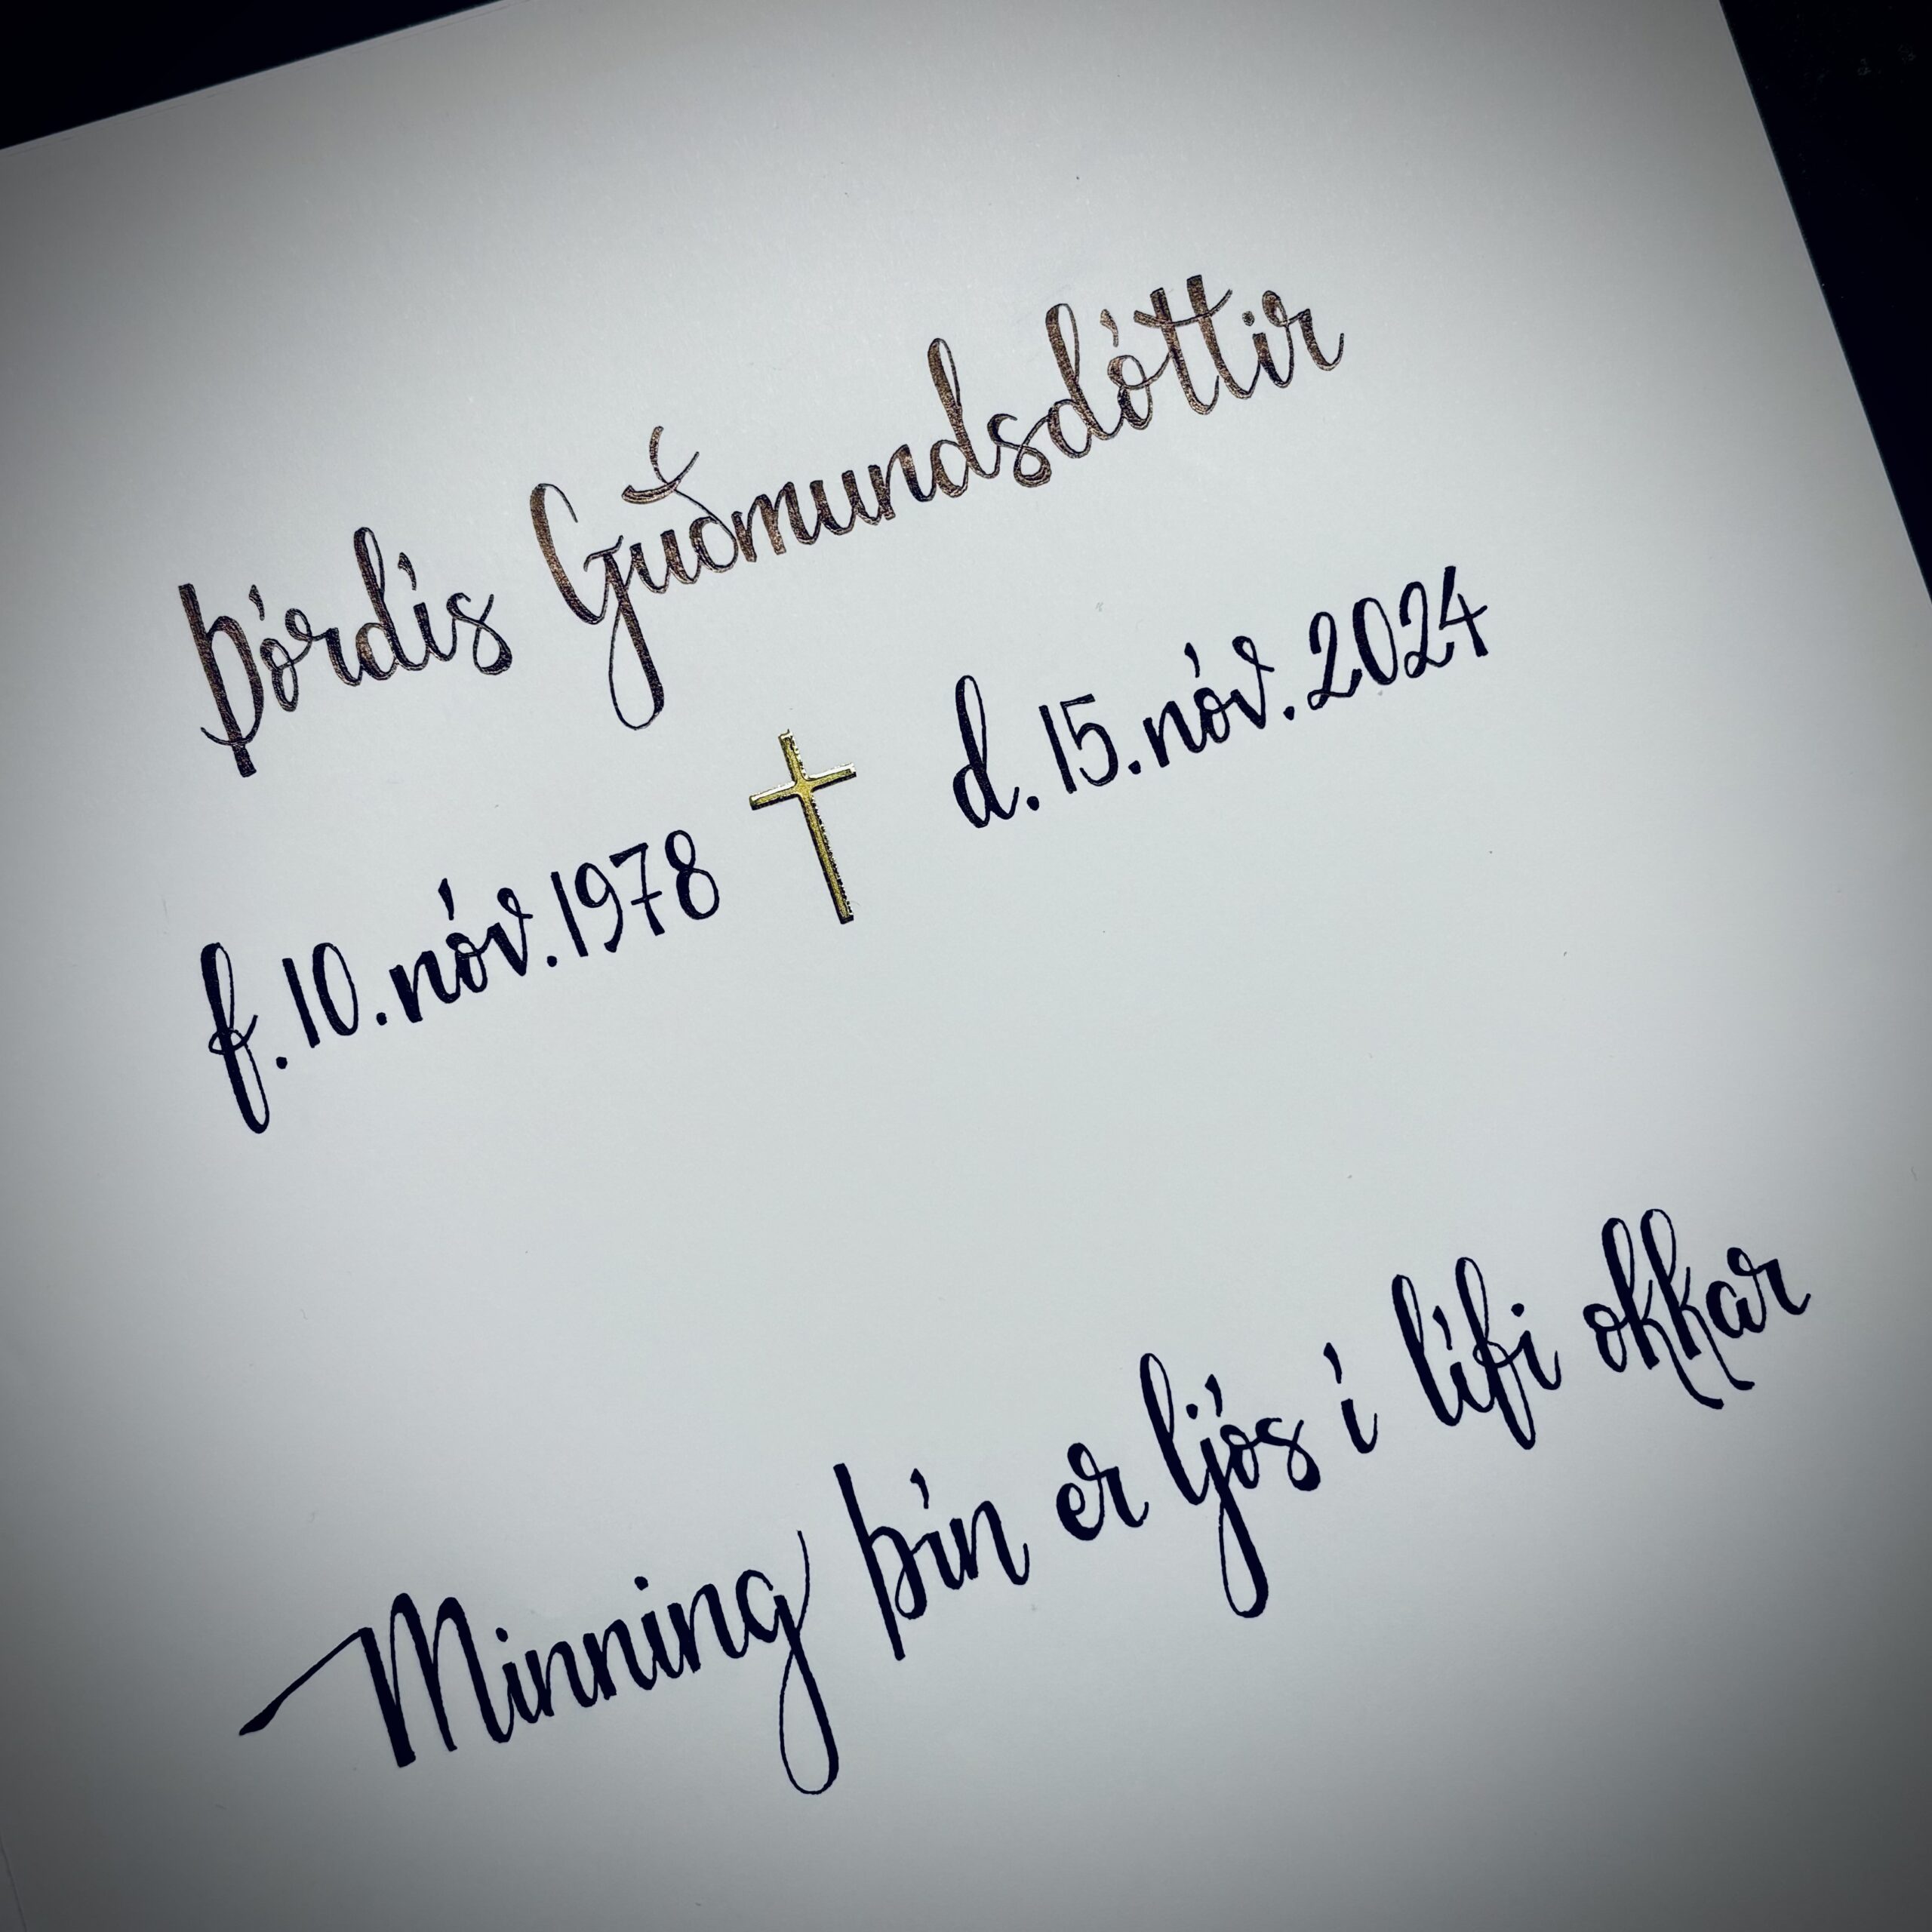 Þórdís Guðmundsdóttir
f. 10. nóv. 1978 d. 15. nóv. 2024
Minning þín er ljós í lífi okkar